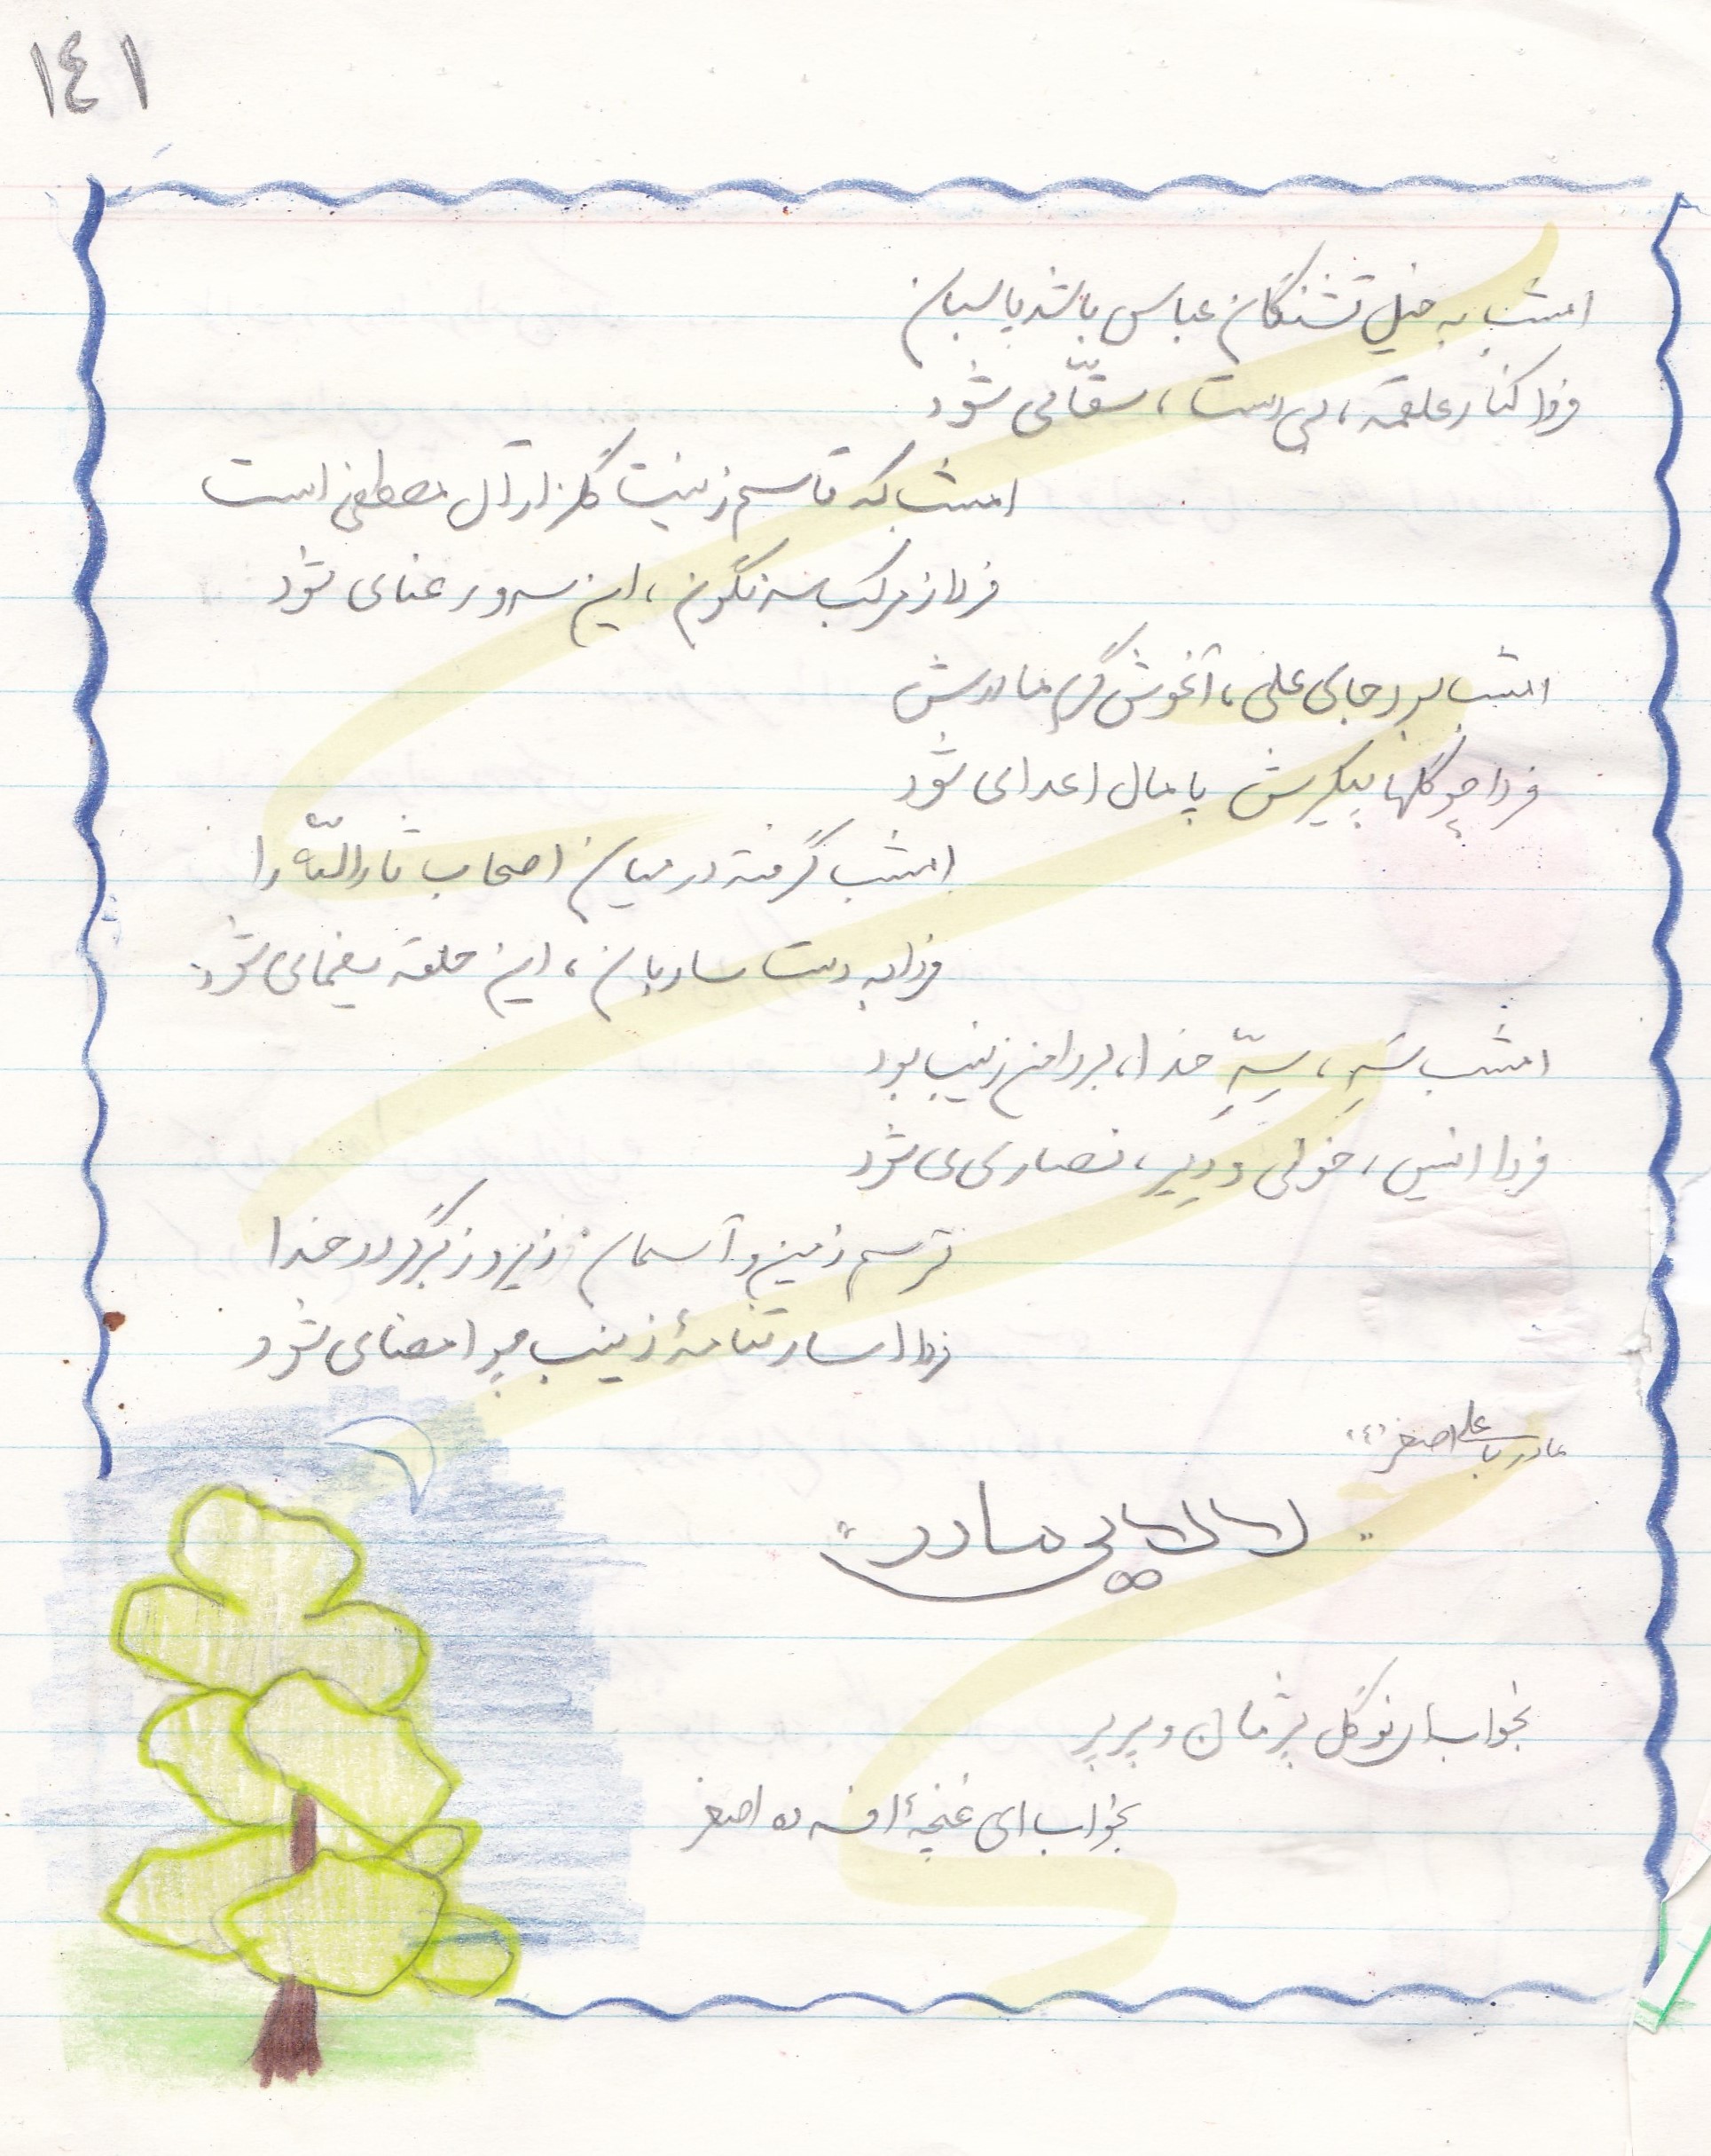 ١٤١
امشب به خیل تشنگان عباس باشد پاسبان
فردا کنار علقمه، بی دست، سقّا می شود
امشب که قاسم زینت گلزار آل مصطفی است
فردا ز مرکب سرنگون، این سرو رعنا می شود
امشب بود جای علی، آغوش گرم مادرش
فردا چو گلها پیکرش پامال اعدا می شود
امشب گرفته در میان اصحاب ثاراللّه را
فردا به دست ساربان، این حلقه یغما می شود
امشب سَرِ، سِرِّ خدا، بر دامن زینب بود
فردا انیس، خولی و دِیرِ، نصاری می شود
ترسم زمین و آسمان زیر و زبر گردد خدا
فردا اسارتنامهٔ زینب چو امضا می شود
مادر با علی اصغر (ع)
"لالالایی مادر"
بخواب ای نوگل پژمان و پرپر
بخواب ای غنچهٔ افسرده اصغر